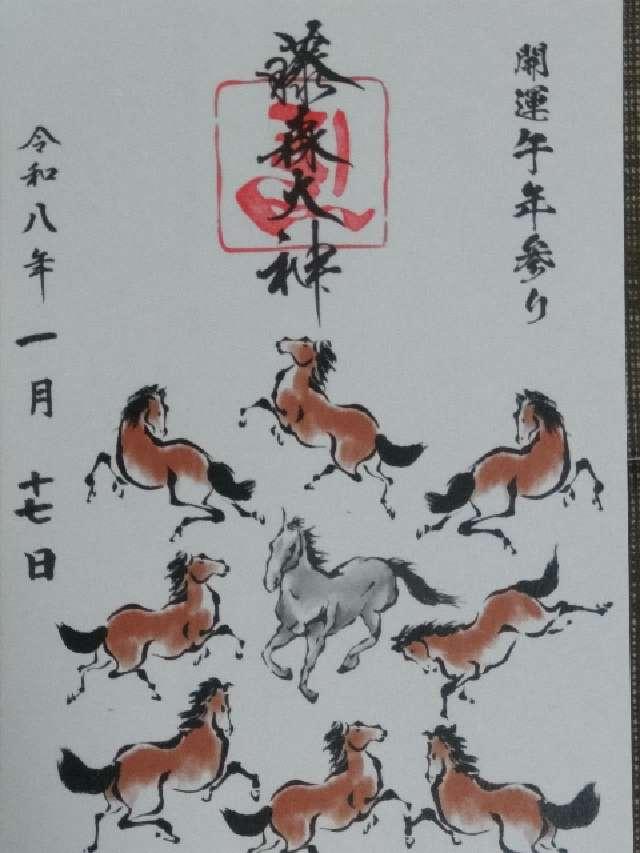 開運午年参り
藤森大神
令和八年一月十七日